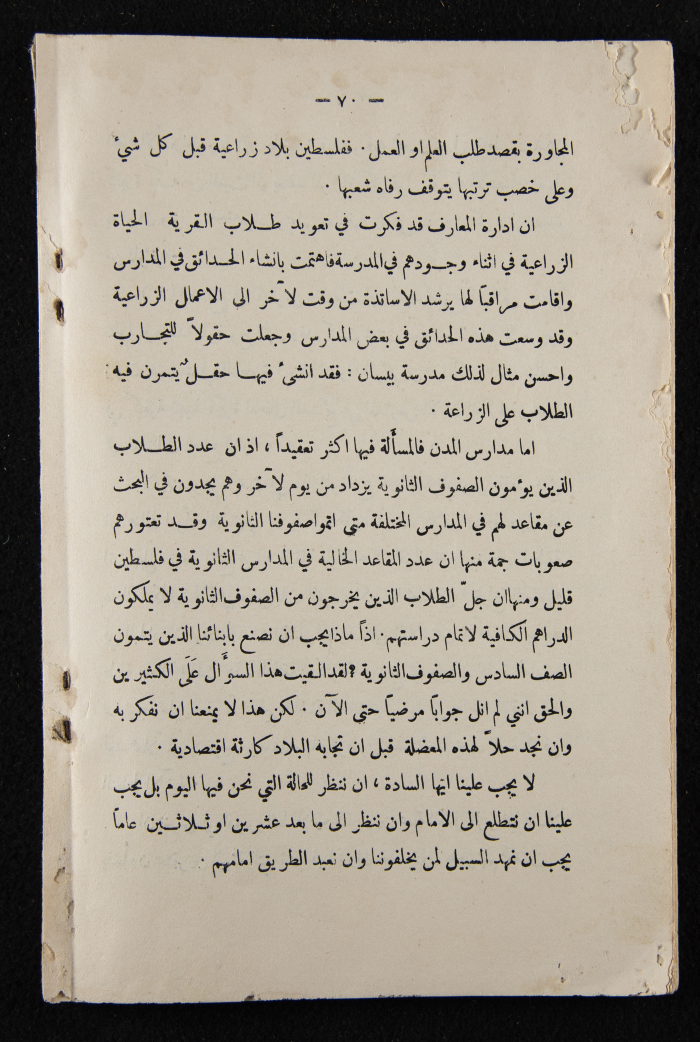 — ٧٠ —
المجاورة بقصد طلب العلم او العمل . ففلسطين بلاد زراعية قبل كل شيء
وعلى خصب تربتها يتوقف رفاه شعبها .
ان ادارة المعارف قد فكرت في تعويد طلاب القرية الحياة
الزراعية في اثناء وجودهم في المدرسة فاهتمت بانشاء الحدائق في المدارس
واقامت مراقباً لها يرشد الاساتذة من وقت لآخر الى الاعمال الزراعية
وقد وسعت هذه الحدائق في بعض المدارس وجعلت حقولاً للتجارب
واحسن مثال لذلك مدرسة بيسان : فقد انشئ فيها حقل يتمرن فيه
الطلاب على الزراعة .
اما مدارس المدن فالمسألة فيها اكثر تعقيداً ، اذ ان عدد الطلاب
الذين يؤمون الصفوف الثانوية يزداد من يوم لآخر وهم يجدون في البحث
عن مقاعد لهم في المدارس المختلفة متى اتموا صفوفنا الثانوية وقد تعتورهم
صعوبات جمة منها ان عدد المقاعد الخالية في المدارس الثانوية في فلسطين
قليل ومنها ان جلّ الطلاب الذين يخرجون من الصفوف الثانوية لا يملكون
الدراهم الكافية لاتمام دراستهم . اذاً ماذا يجب ان نصنع بابنائنا الذين يتمون
الصف السادس والصفوف الثانوية ؟ لقد القيت هذا السؤال عَلَى الكثيرين
والحق انني لم انل جواباً مرضياً حتى الآن . لكن هذا لا يمنعنا ان نفكر به
وان نجد حلاً لهذه المعضلة قبل ان تجابه البلاد كارثة اقتصادية .
لا يجب علينا ايها السادة ، ان ننظر للحالة التي نحن فيها اليوم بل يجب
علينا ان نتطلع الى الامام وان ننظر الى ما بعد عشرين او ثلاثين عاماً
يجب ان نمهد السبيل لمن يخلفوننا وان نعبد الطريق امامهم .